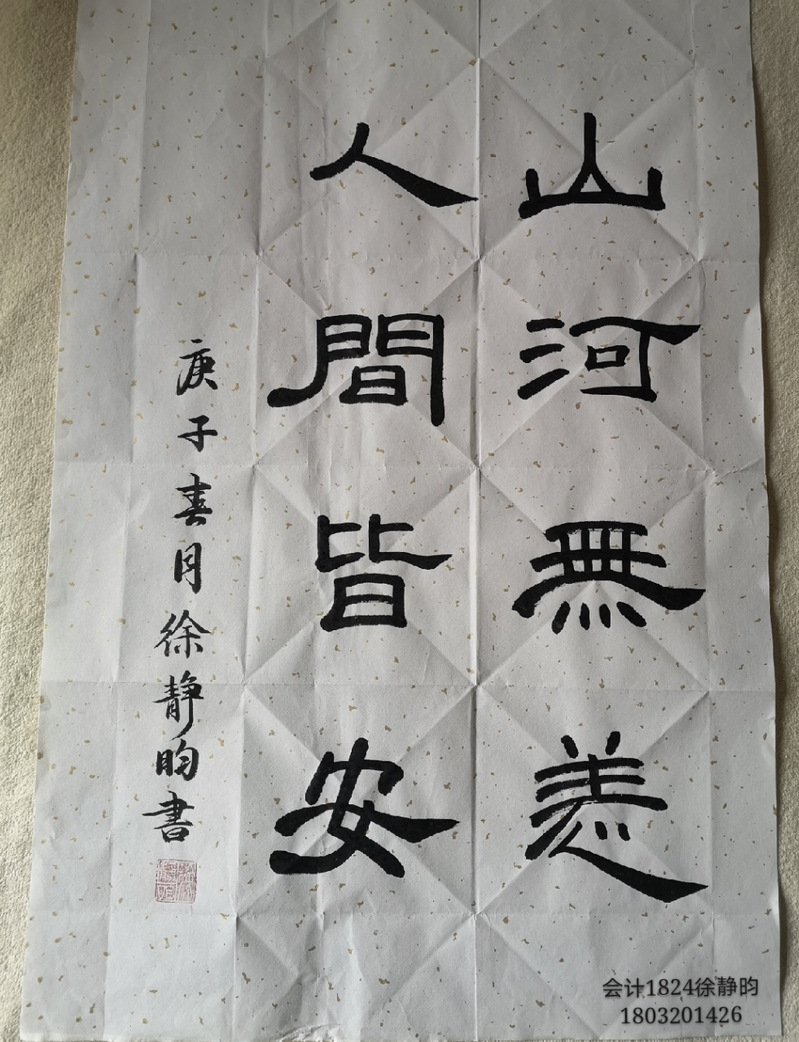 山河無恙
人間皆安
庚子春月徐静昀書
会计1824徐静昀
1803201426